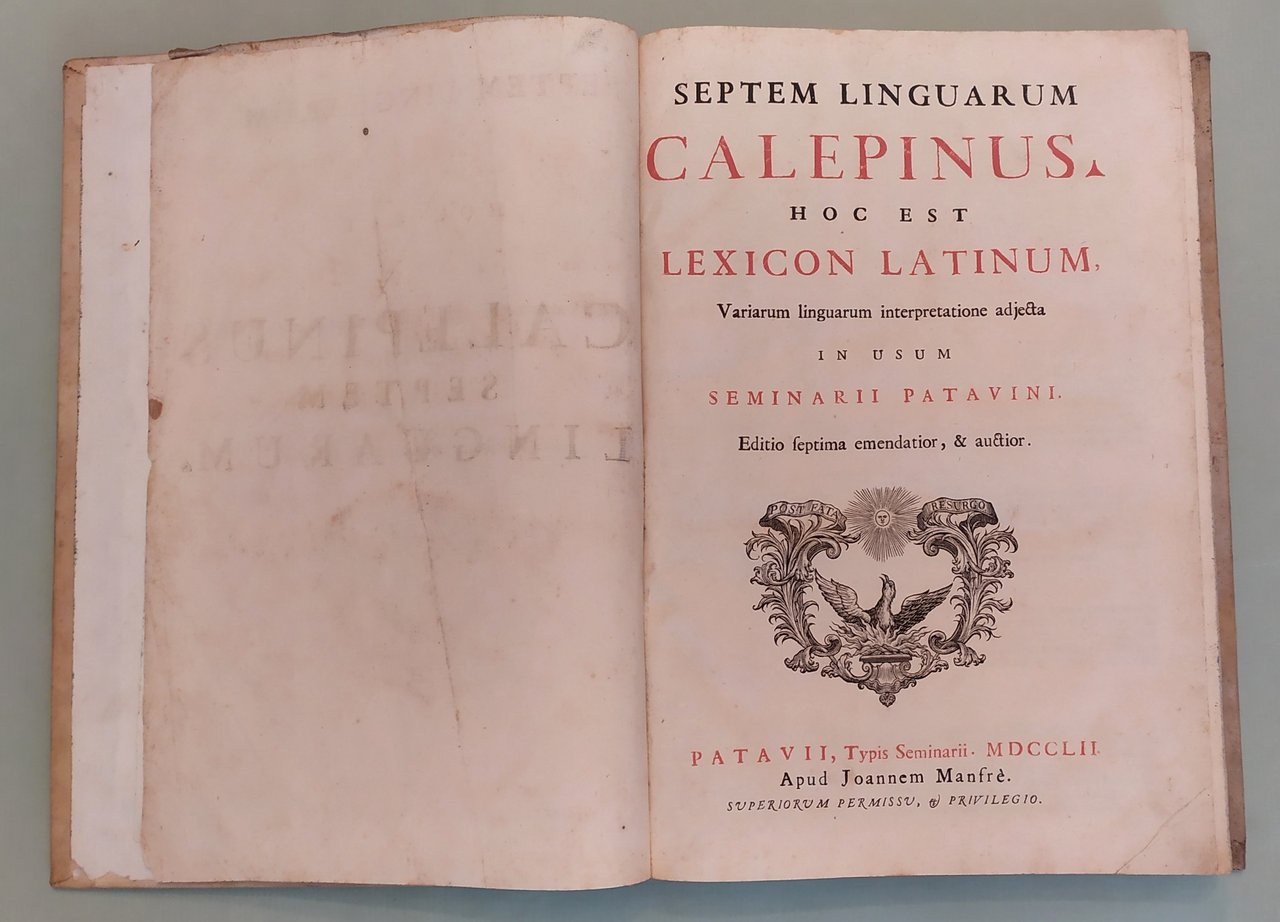 SEPTEM LINGUARUM
CALEPINUS.
HOC EST
LEXICON LATINUM,
Variarum linguarum interpretatione adjecta
IN USUM
SEMINARII PATAVINI.
Editio ſeptima emendatior, & auctior.
POST FATA
RESURGO
PATAVII, Typis Seminarii. MDCCLII.
Apud Joannem Manfrè.
SVPERIORVM PERMISSV, & PRIVILEGIO.